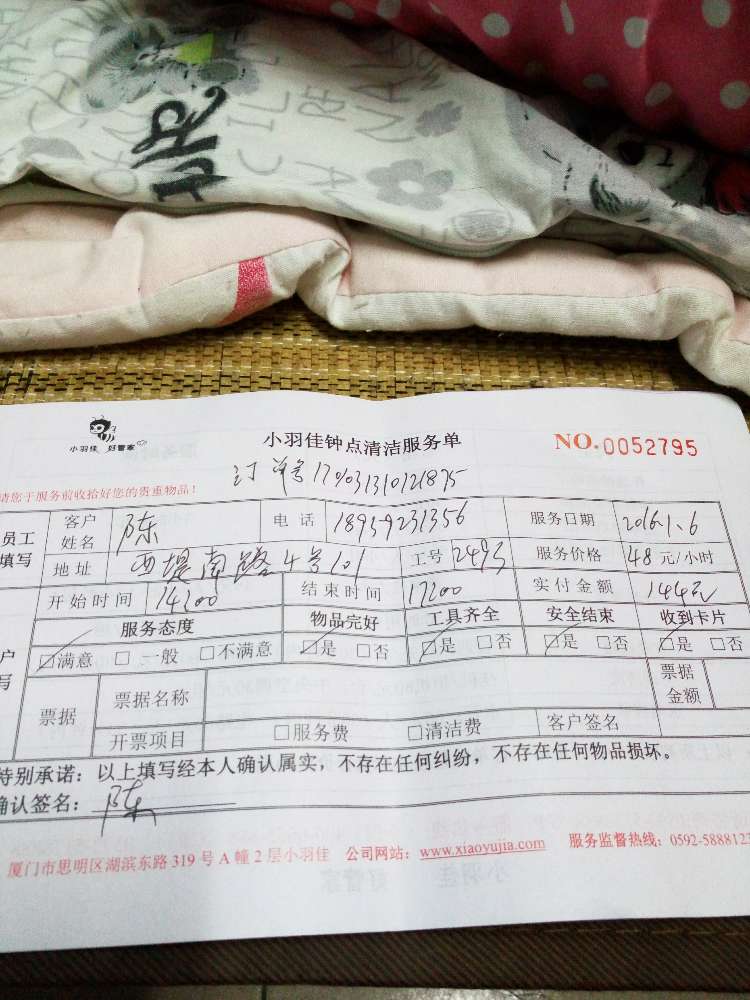 小羽佳 好管家
小羽佳钟点清洁服务单
NO.0052795
请您于服务前收拾好您的贵重物品！
员工填写
客户姓名 陈 电话 18959231356 服务日期 2016.1.6
地址 西堤南路4号101 工号 2493 服务价格 48元/小时
开始时间 14:00 结束时间 17:00 实付金额 144元
服务态度 物品完好 工具齐全 安全结束 收到卡片
□满意 □一般 □不满意 □是 □否 □是 □否 □是 □否 □是 □否
票据 票据名称 票据金额
开票项目 □服务费 □清洁费 客户签名
特别承诺：以上填写经本人确认属实，不存在任何纠纷，不存在任何物品损坏。
确认签名：陈
厦门市思明区湖滨东路319号A幢2层小羽佳 公司网站：www.xiaoyujia.com 服务监督热线：0592-5888123